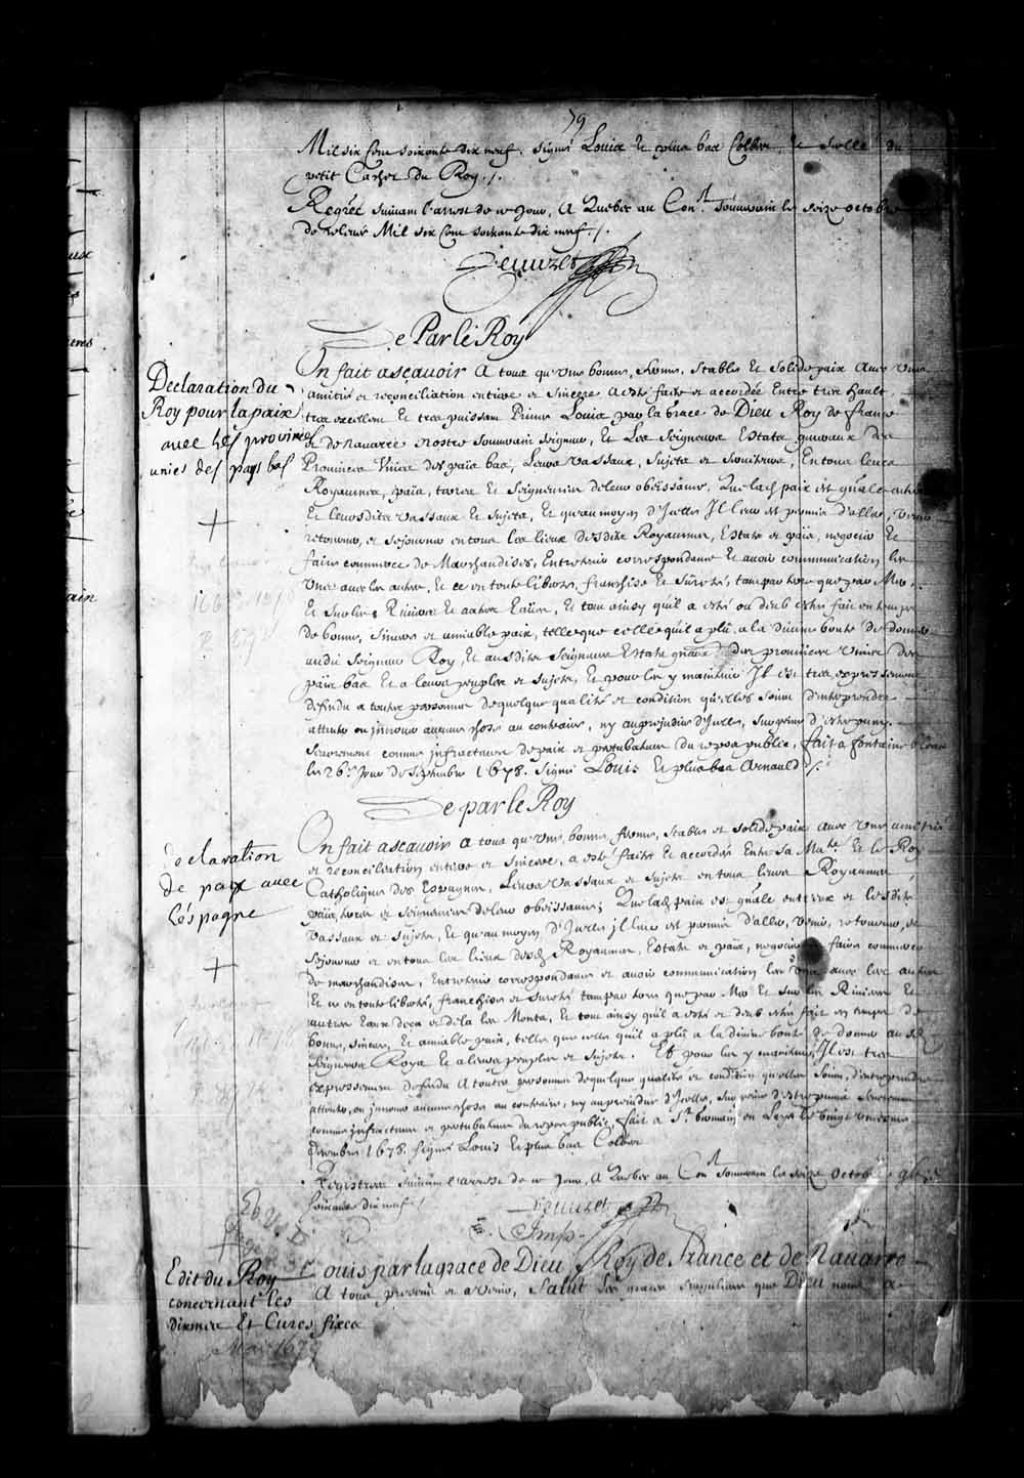 79
Mil six Cens soixante dix neuf. Signé Louis Et plus bas Colbert, et scellé du
petit Cachet du Roy ./.
Regrée suivant l'arrest de ce Jour, A Quebec au Con.el Souuerain le seize octobre
de relevée Mil six Cens soixante dix neuf ./.
Peuuret
De Par le Roy
Declaration du
Roy pour la paix
auec les prouinces
unies des pays bas
On fait asçauoir A tous qu'une bonne, ferme, stable Et solide paix Auec Une
amitié et reconciliation entiere et sincere a esté faite et accordée Entre tres hault
tres excellent Et tres puissant Prince Louis par la Grace de Dieu Roy de france
et de nauarre nostre souuerain seigneur, Et Les Seigneurs Estats generaux des
Prouinces Unies des païs bas, Leurs Vassaux, Sujets et Seruiteurs, En tous leurs
Royaumes, païs, terres Et Seigneuries de leur obeissance. Que lad. paix est gñale entre
Et leursdits vassaux Et sujets, Et qu'au moyen d'Icelle Il leur est permis d'aller, venir
retourner, et sejourner en tous les lieux desdits Royaumes, Estats et païs, negocier Et
faire commerce de Marchandises, Entretenir correspondance Et auoir communication les
Uns auec les autres, Et ce en toute liberté, franchise Et sûreté, tant par terre que par Mer
Et sur les Riuieres Et autres Eaües, Et tout ainsy qu'il a esté ou deub estre fait en temps
de bonne, sincere et amiable paix, telle que celle qu'il a plû a la diuine bonté de donner
audit Seigneur Roy, Et ausdits Seigneurs Estats gñaux des prouinces Unies des
païs bas Et a leurs peuples et sujets, Et pour les y maintenir Il est tres expressement
defendu a toutes personnes de quelque qualité et condition qu'elles soient d'entreprendre
attenter ou innouer aucune chose au contraire, ny au prejudice d'Icelle, sur peine d'estre punys
seuerement comme infracteurs de paix et pertubateurs du repos public, fait a fontainebleau
le 26.e Jour de Septembre 1678. Signé Louis Et plus bas Arnauld ./.
De par le Roy
declaration
de paix auec
l'éspagne
On fait asçauoir A tous qu'une bonne, ferme, stable et solide paix auec Une amitié
et reconciliation entiere et sincere, a esté faite Et accordée Entre Sa Ma.té Et le Roy
Catholique des Espagnes, Leurs Vassaux et Sujets en tous leurs Royaumes
païs, terres et seigneuries de leur obeissance; Que lad. paix est gñale entr'eux et lesdits
vassaux et sujets, Et qu'au moyen d'Icelle il leur est permis d'aller, venir, retourner, et
sejourner et en tous les lieux desd. Royaumes, Estats et païs, negocier Et faire commerce
de marchandises, Entretenir correspondance et auoir communication les Uns auec les autres
Et ce en toute liberté, franchise et sureté tant par terre que par Mer Et sur les Riuieres Et
autres Eaux deça et dela les Monts, Et tout ainsy qu'il a esté et deub estre fait en temps de
bonne, sincere, Et amiable paix, telle que celle qu'il a plû a la diuine bonté de donner aus.d
Seigneurs Roys Et a leurs peuples et sujets. Et pour les y maintenir, Il est tres
expressement defendu A toutes personnes de quelque qualité et condition qu'elles soient, d'entreprendre
attenter, ou innouer aucune chose au contraire, ny au prejudice d'Icelle, sur peine d'estre punis seuerement
comme infracteurs et pertubateurs du repos public, fait a S.t Germain en Laye le vingt
Decembre 1678. Signé Louis Et plus bas Colbert
Registrée suiuant l'arrest de ce Jour, A Quebec au Con.el Souuerain le seize octobre
soixante dix neuf ./.
Peuuret
Imp.
Edit du Roy
concernant les
dixmes Et Cures fixes
Mai 1679
Louis par la grace de Dieu Roy de France et de Nauarre
A tous presens et a venir, Salut
Dieu nous a